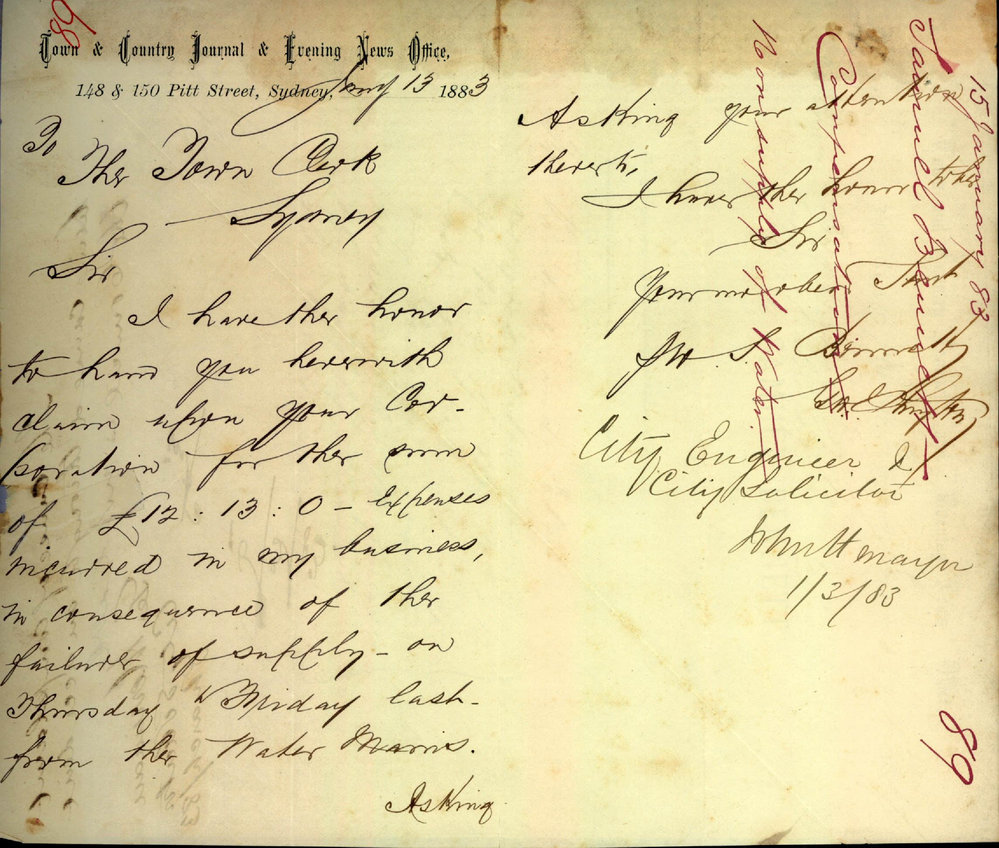 89
Town & Country Journal & Evening News Office,
148 & 150 Pitt Street, Sydney, Jany 13 1883
To
The Town Clerk
Sydney
Sir
I have the honor
to hand you herewith
claim upon your Cor-
poration for the sum
of £12 : 13 : 0 - Expenses
incurred in my business,
in consequence of the
failure of supply - on
Thursday & Friday last -
from the Water Mains.
Asking
Asking your attention
thereto,
I have the honor to be
Sir
Your most obedt Servt
City Engineer &
City Solicitor
mayor
1/3/83
15 January 83
Samuel Bennett
Compensation
Non supply of Water
89